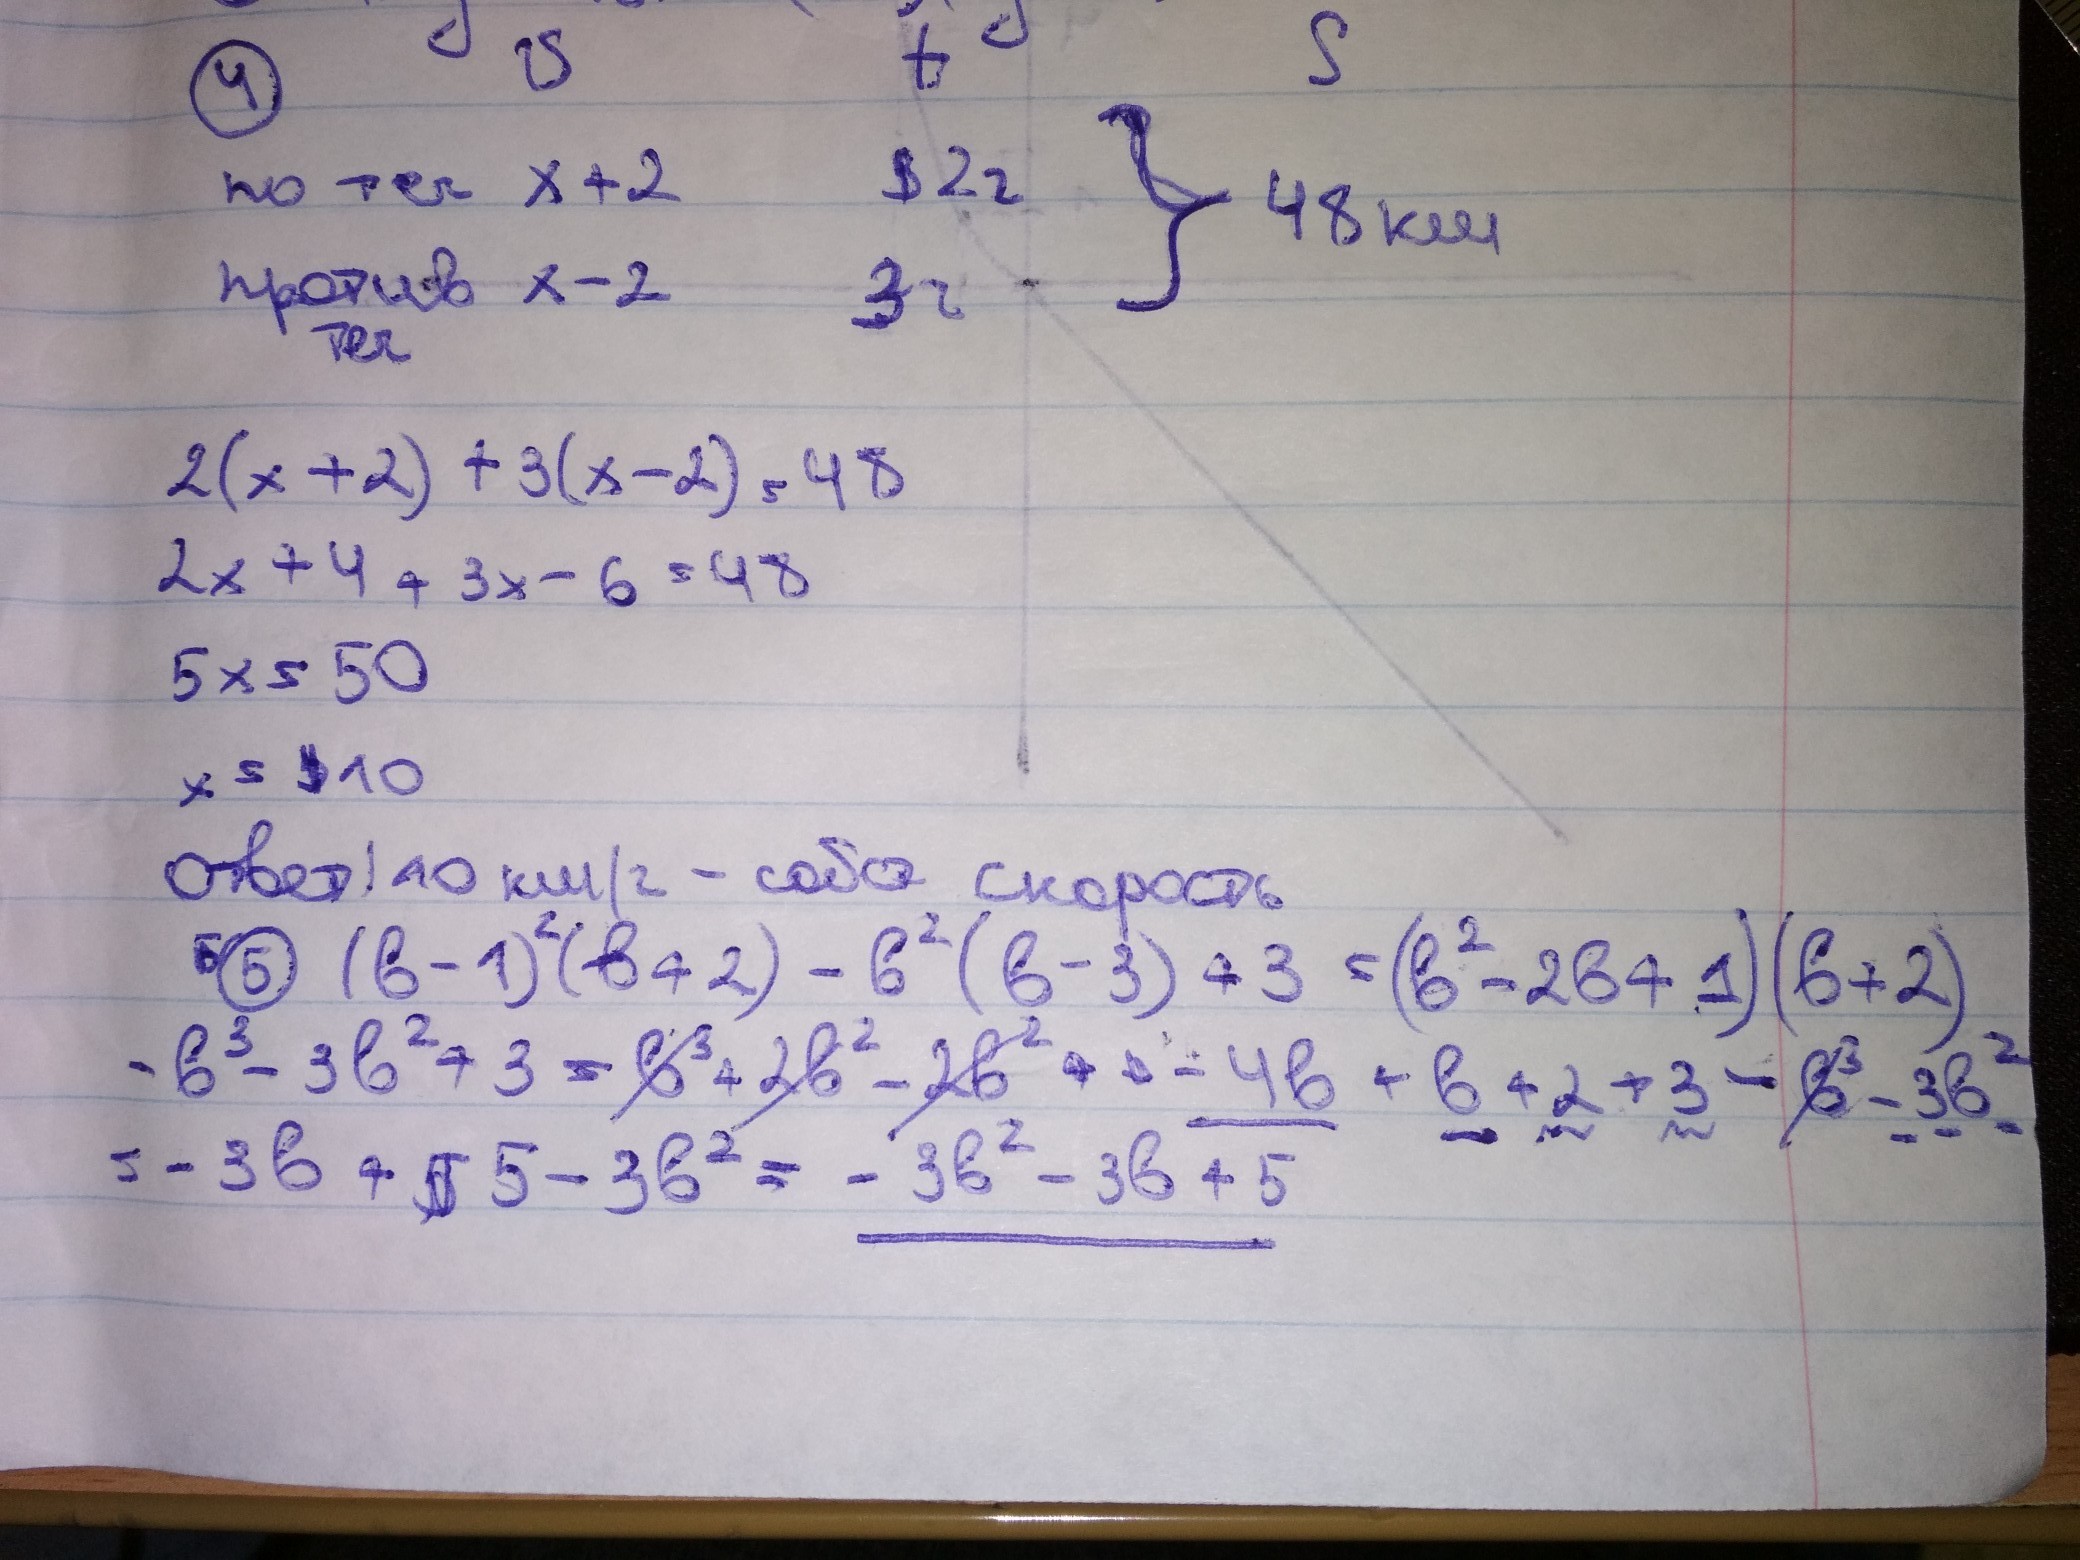 ④ V t S
по теч x+2 2ч
} 48 км
против x-2 3ч
теч
2(x+2)+3(x-2)=48
2x+4+3x-6=48
5x=50
x=10
Ответ: 10 км/ч - собст скорость
⑤ (b-1)²(b+2)-b²(b-3)+3=(b²-2b+1)(b+2)
-b³-3b²+3=b³+2b²-2b²+ -4b+b+2+3-b³-3b²
=-3b+5-3b²=-3b²-3b+5